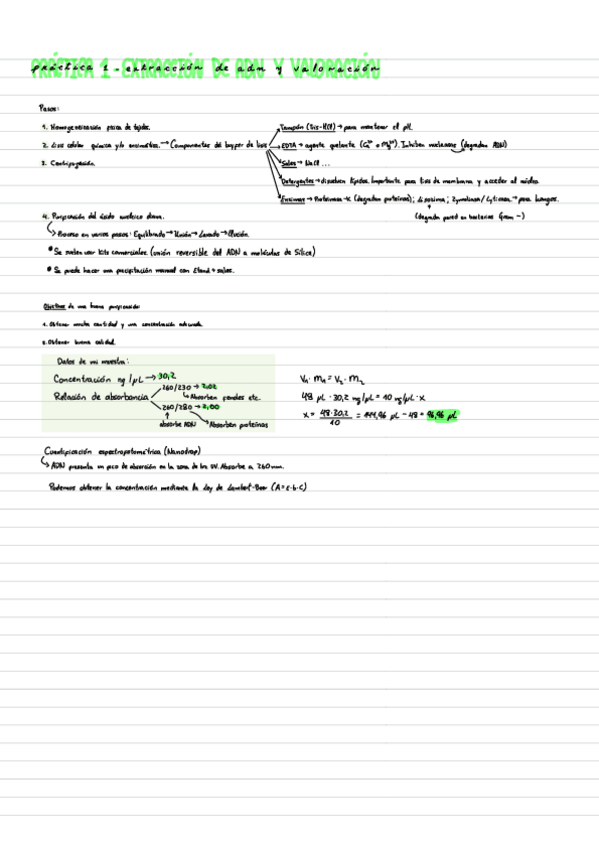 práctica 1 - extracción de adn y valoración
Pasos:
1. Homogeneización física de tejidos.
2. Lisis celular química y/o enzimática. → Componentes del buffer de lisis
3. Centrifugación.
Tampón (Tris-HCl) → para mantener el pH
EDTA → agente quelante (Ca²⁺ o Mg²⁺). Inhiben nucleasas (degradan ADN)
Sales → NaCl ...
Detergentes → disuelven lípidos. Importante para tiras de membrana y acceder al núcleo.
Enzimas → Proteinasa-K (degradan proteínas); lisozima; Zymoliasa / → para hongos.
(degrada pared en bacterias Gram -)
4. Purificación del ácido nucleico diana.
↳ Proceso en varios pasos: Equilibrado → Unión → Lavado → Elución.
* Se suelen usar kits comerciales. (unión reversible del ADN a moléculas de Sílice)
* Se puede hacer una precipitación manual con Etanol + sales.
Objetivos de una buena purificación:
1. Obtener mucha cantidad y una concentración adecuada.
2. Obtener buena calidad.
Datos de mi muestra:
Concentración ng/µL → 30,2
Relación de absorbancia
260/230 → 2,02
↳ Absorben fenoles etc.
260/280 → 2,00
absorbe ADN
Absorben proteínas
V₁ · M₁ = V₂ · M₂
48 µL · 30,2 ng/µL = 10 ng/µL · x
x = 48·30,2 / 10 = 144,96 µL - 48 = 96,96 µL
Cuantificación espectrofotométrica (Nanodrop)
↳ ADN presenta un pico de absorción en la zona de los UV. Absorbe a 260 nm.
Podemos obtener la concentración mediante la Ley de Lambert-Beer (A = ε · b · C)